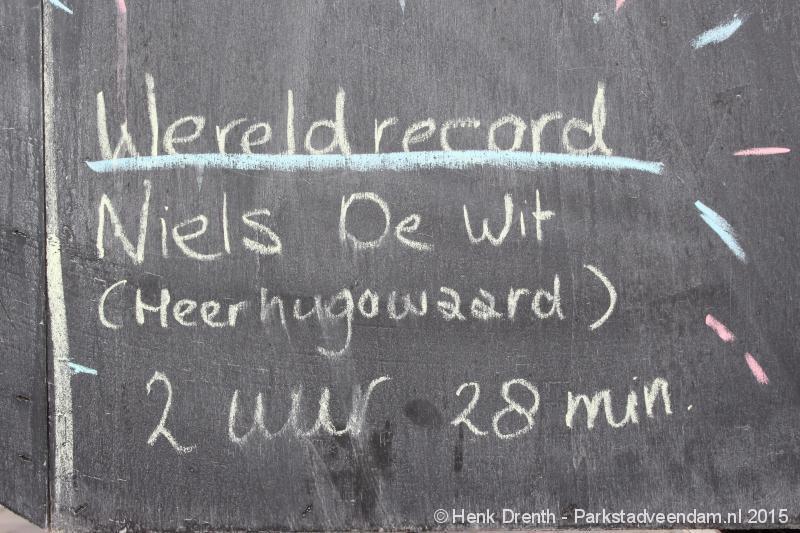 Wereldrecord
Niels De Wit
(Heerhugowaard)
2 uur 28 min.
©Henk Drenth - Parkstadveendam.nl 2015